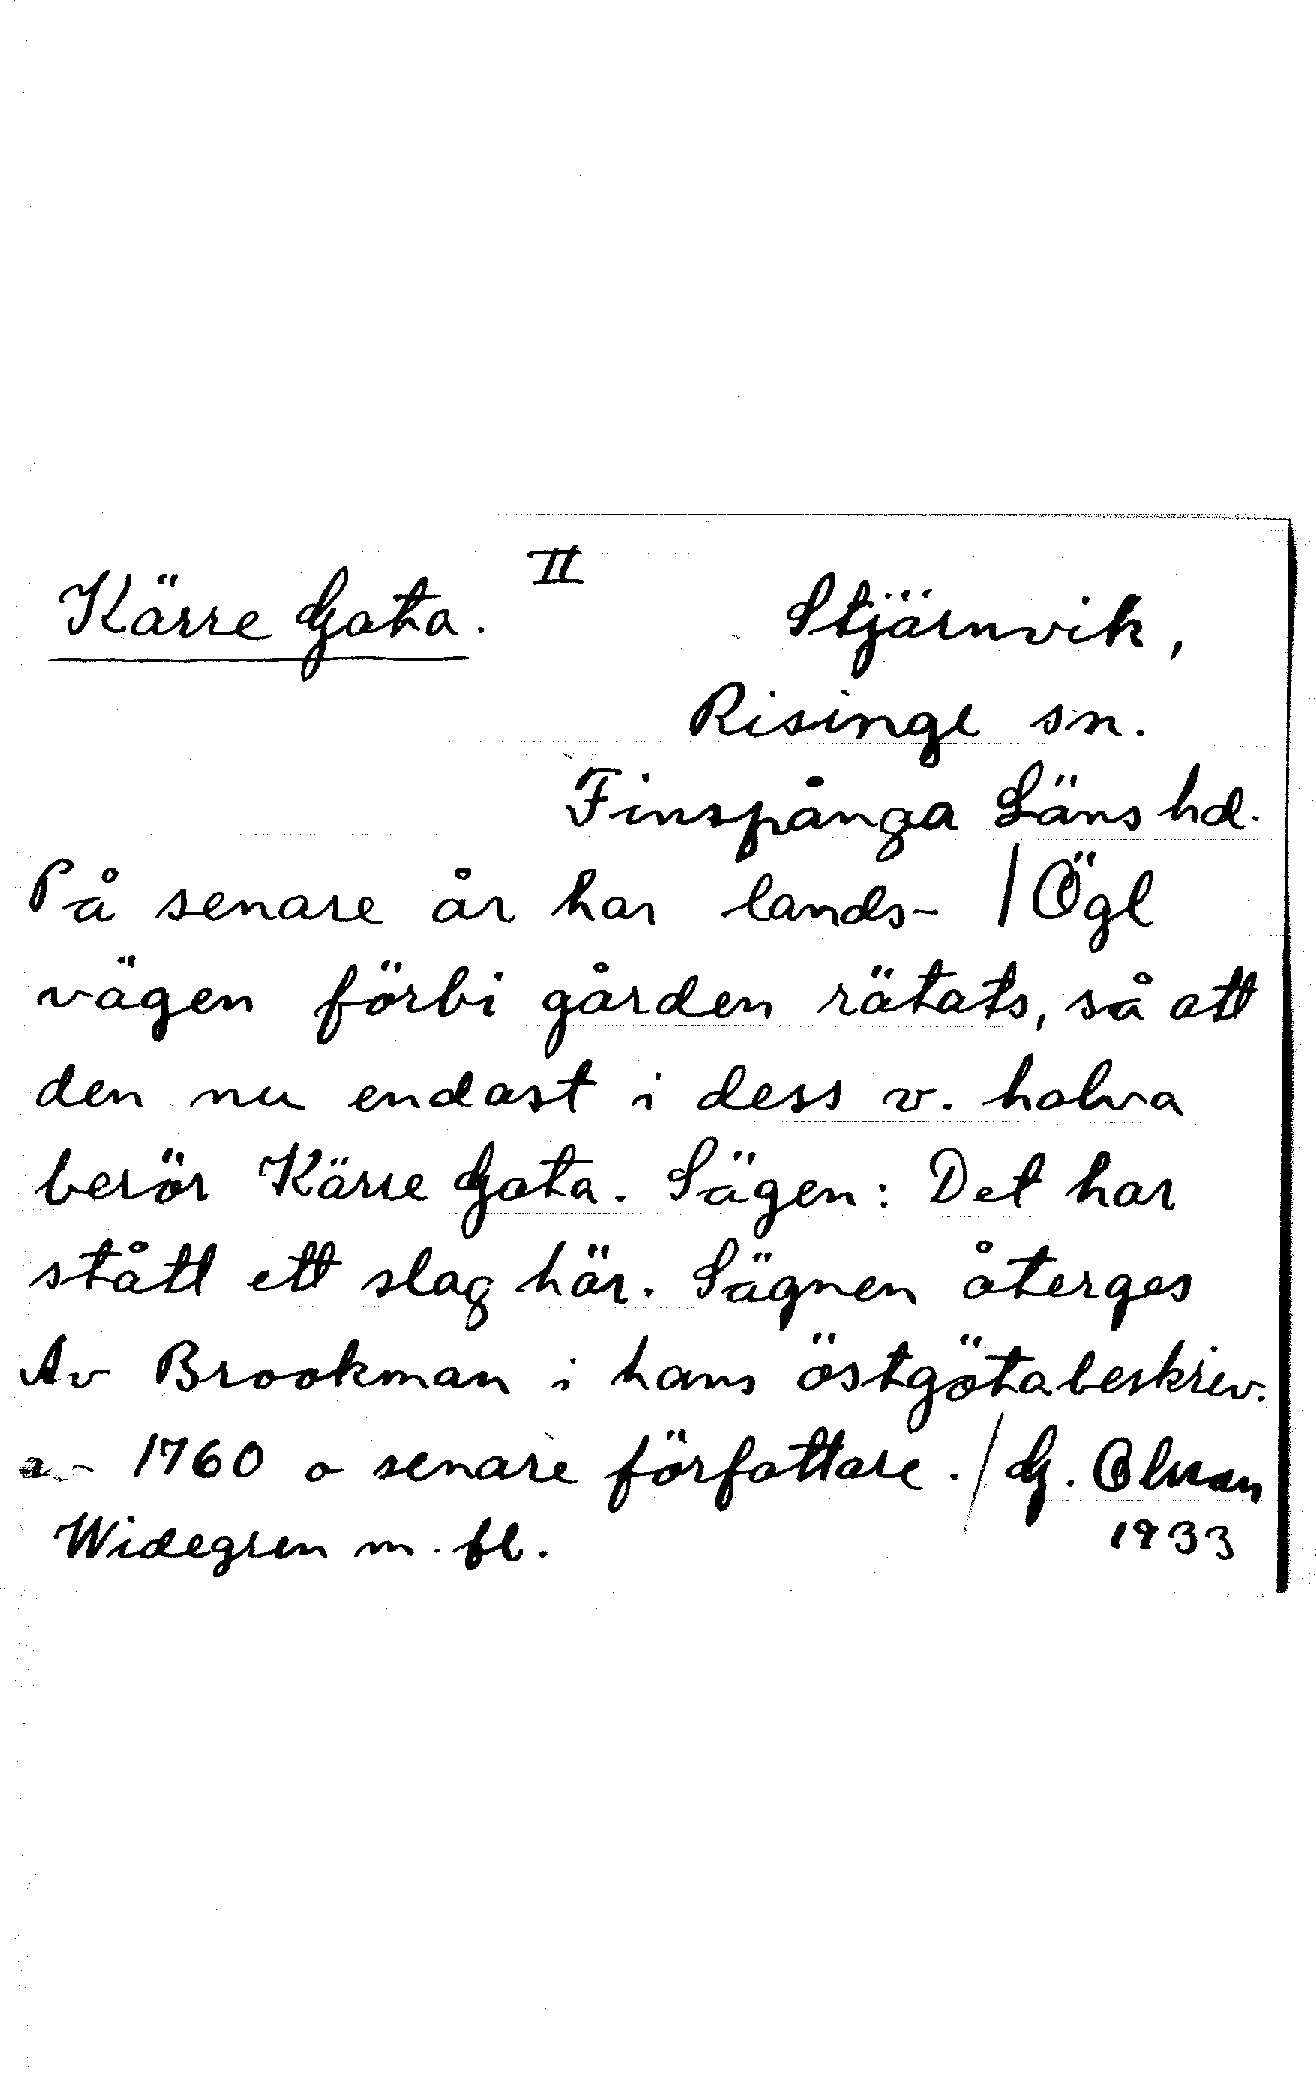 II
Kärre Gata. Stjärnvik,
Risinge sn.
Finspånga Läns hd.
På senare år har lands- / Ögl
vägen förbi gården rätats, så att
den nu endast i dess v. halva
berör Kärre Gata. Sägen: Det har
stått ett slag här. Sägnen återges
Av Brookman i hans östgötabeskriv.
1760 o senare författare. / G. Olsson
Widegren m. fl. 1933